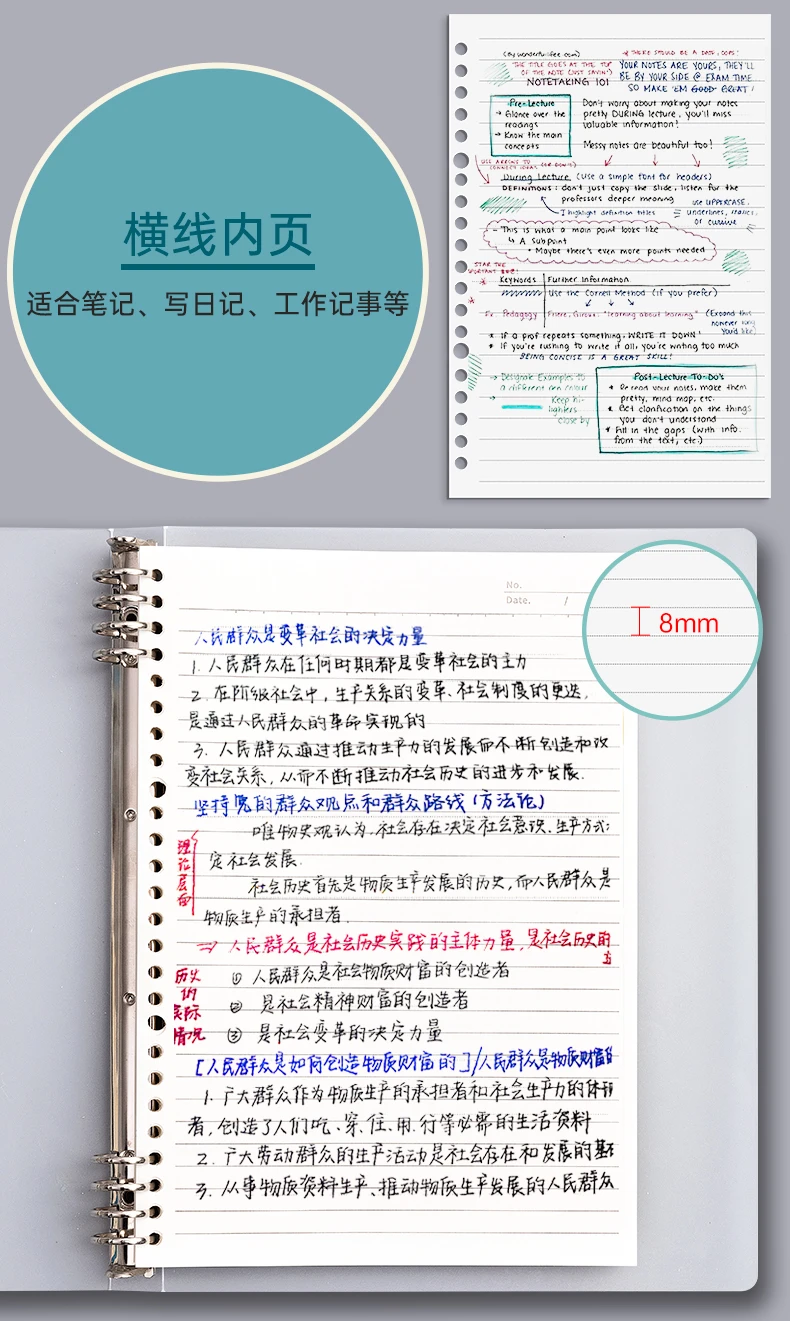 横线内页
适合笔记、写日记、工作记事等
(by wonderfulife.com)
* THERE SHOULD BE A DATE, OOPS!
THE TITLE GOES AT THE TOP
OF THE NOTE (JUST SAYIN')
NOTETAKING 101
YOUR NOTES ARE YOURS, THEY'LL
BE BY YOUR SIDE @ EXAM TIME
SO MAKE 'EM GOOD GREAT!
Pre-Lecture
→ Glance over the
readings
→ Know the main
concepts
Don't worry about making your notes
pretty DURING lecture, you'll miss
valuable information!
Messy notes are beautiful too!
USE ARROWS TO
CONNECT IDEAS (OR DON'T)
During Lecture (use a simple font for headers)
DEFINITIONS: don't just copy the slide, listen for the
professors deeper meaning
I highlight definition titles
use UPPERCASE,
underlines, italics,
or cursive
• This is what a main point looks like
↳ A Subpoint
• Maybe there's even more points needed
STAR THE
Keywords
Further Information
Use the Cornell Method (if you prefer)
Pedagogy
Friere, Giroux "learning about learning"
(Expand this
however long
you'd like)
* If a prof repeats something, WRITE IT DOWN!
* If you're rushing to write it all, you're writing too much
BEING CONCISE IS A GREAT SKILL!
→ Designate Examples to
a different pen colour
→
Keep hi-
lighters
close by
Post-Lecture To-Do's
* Re-read your notes, make them
pretty, mind map, etc.
* Get clarification on the things
you don't understand
* Fill in the gaps (with info.
from the text, etc.)
No.
Date. /
8mm
人民群众是变革社会的决定力量
1. 人民群众在任何时期都是变革社会的主力
2. 在阶级社会中,生产关系的变革、社会制度的更迭,
是通过人民群众的革命实现的
3. 人民群众通过推动生产力的发展而不断创造和改
变社会关系,从而不断推动社会历史的进步和发展.
坚持党的群众观点和群众路线(方法论)
唯物史观认为,社会存在决定社会意识、生产方式
定社会发展.
理论层面
社会历史首先是物质生产发展的历史,而人民群众是
物质生产的承担者.
⇒ 人民群众是社会历史实践的主体力量,是社会历史的
历史
的
实际
情况
① 人民群众是社会物质财富的创造者
② 是社会精神财富的创造者
③ 是社会变革的决定力量
[人民群众是如何创造物质财富的]/人民群众是物质财富
1. 广大群众作为物质生产的承担者和社会生产力的体现
者,创造了人们吃、穿、住、用、行等必需的生活资料
2. 广大劳动群众的生产活动是社会存在和发展的基
3. 从事物质资料生产、推动物质生产发展的人民群众